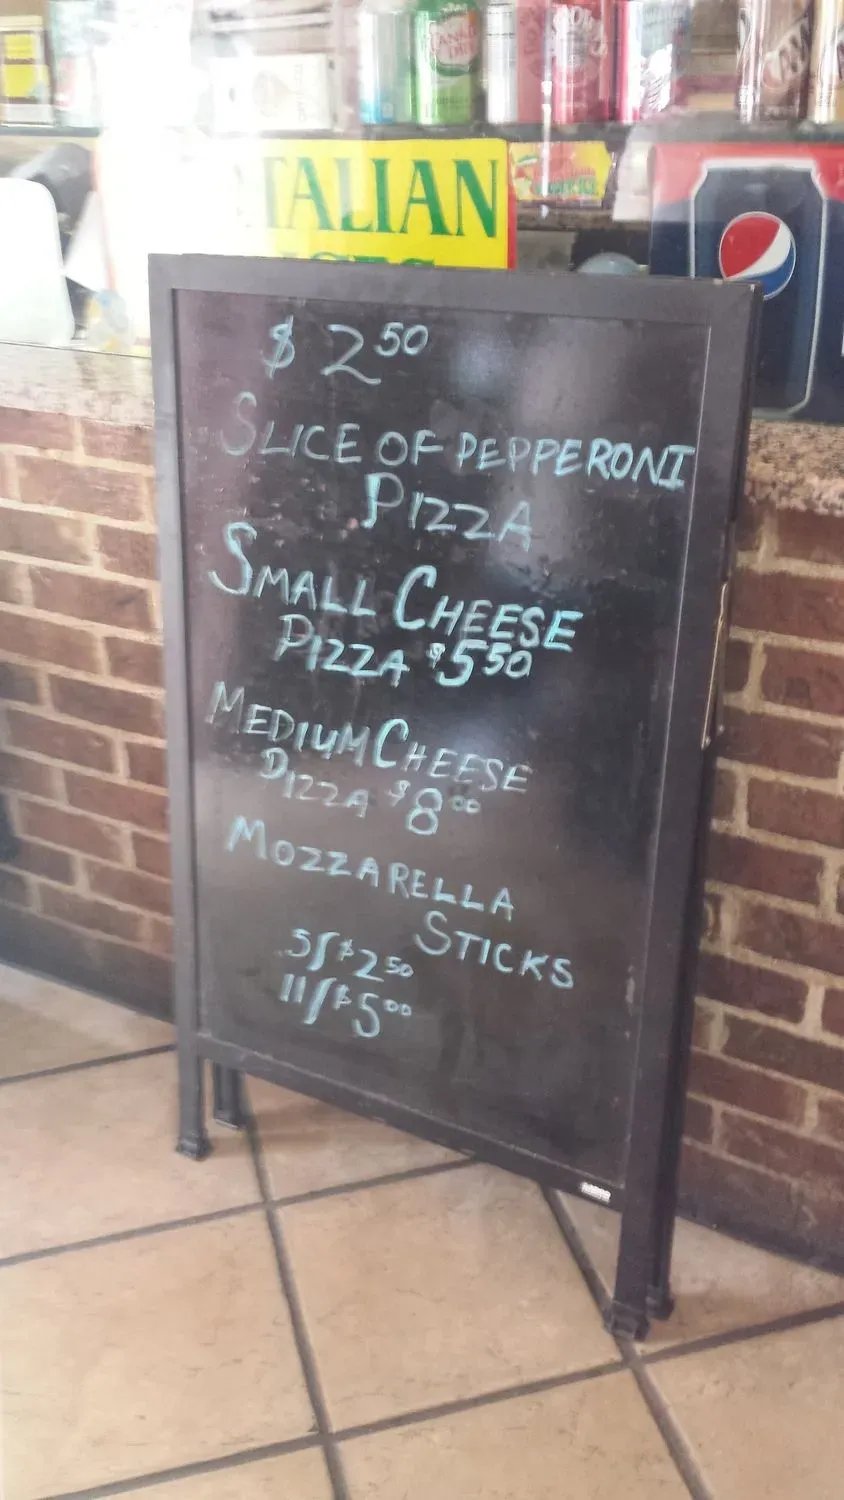 CANADA
DRY
A&W
ITALIAN
ICES
$ 2 50
SLICE OF PEPPERONI
PIZZA
SMALL CHEESE
PIZZA $5 50
MEDIUM CHEESE
PIZZA $8 00
MOZZARELLA
STICKS
5/$2 50
11/$5 00